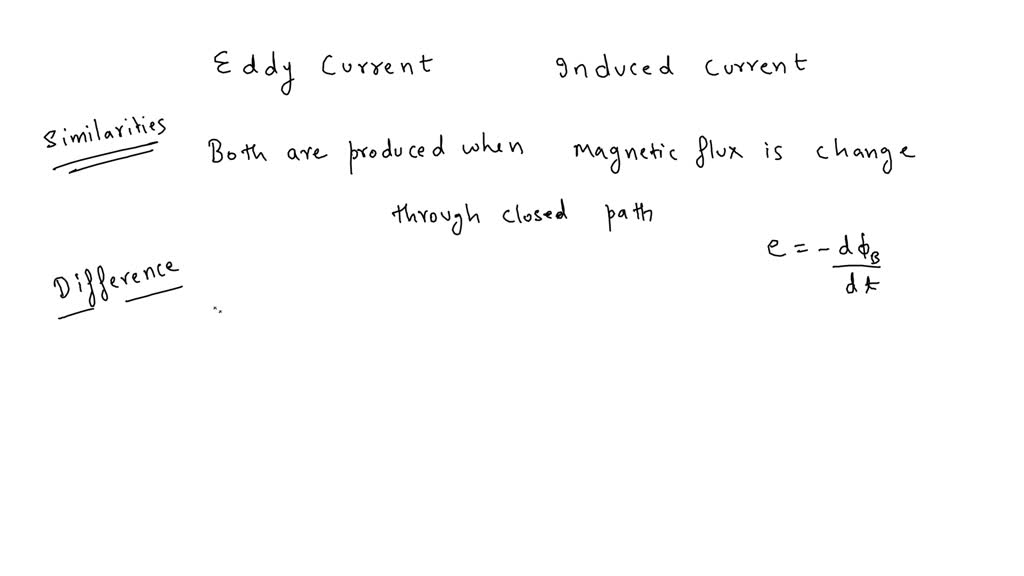 Eddy Current Induced Current
Similarities
Both are produced when magnetic flux is change
through closed path
e = - dϕ_B / dt
Difference